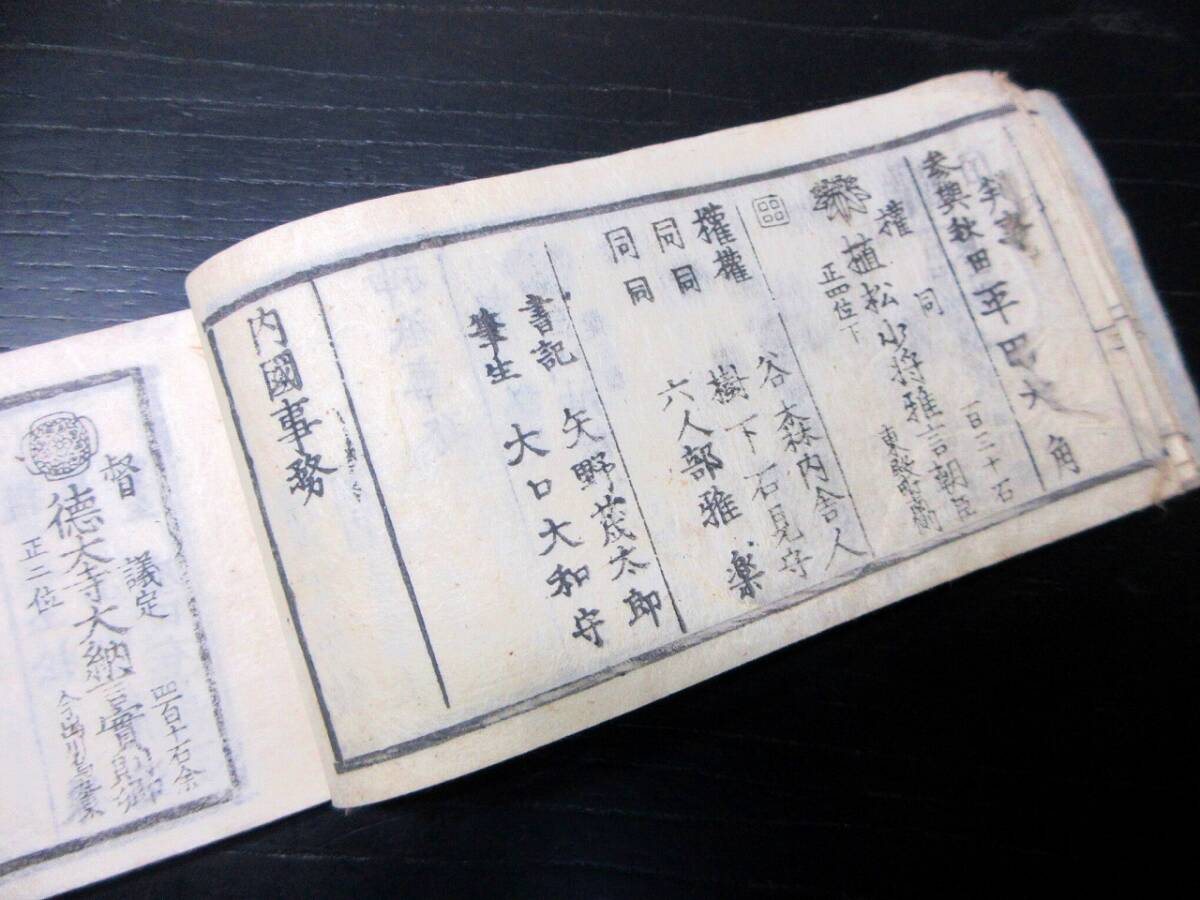 参與 秋田
權 同 一百三十石
植松少将雅言朝臣
正四位下
權 谷森内舎人
權 樹下石見守
同同 六人部雅楽
同同
書記 矢野茂太郎
筆生 大口大和守
内國事務
督 議定 四百十石余
徳大寺大納言實則卿
正二位